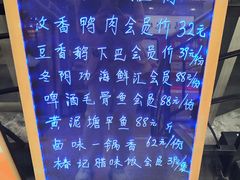 香鸭肉会员价32元
豆香鹅下巴会员价39元/份
冬阴功海鲜汇会员88元/份
啤酒毛骨鱼会员88元/份
黄泥塘甲鱼88元/斤
卤味一锅香62元/份
椿记腊味饭会员